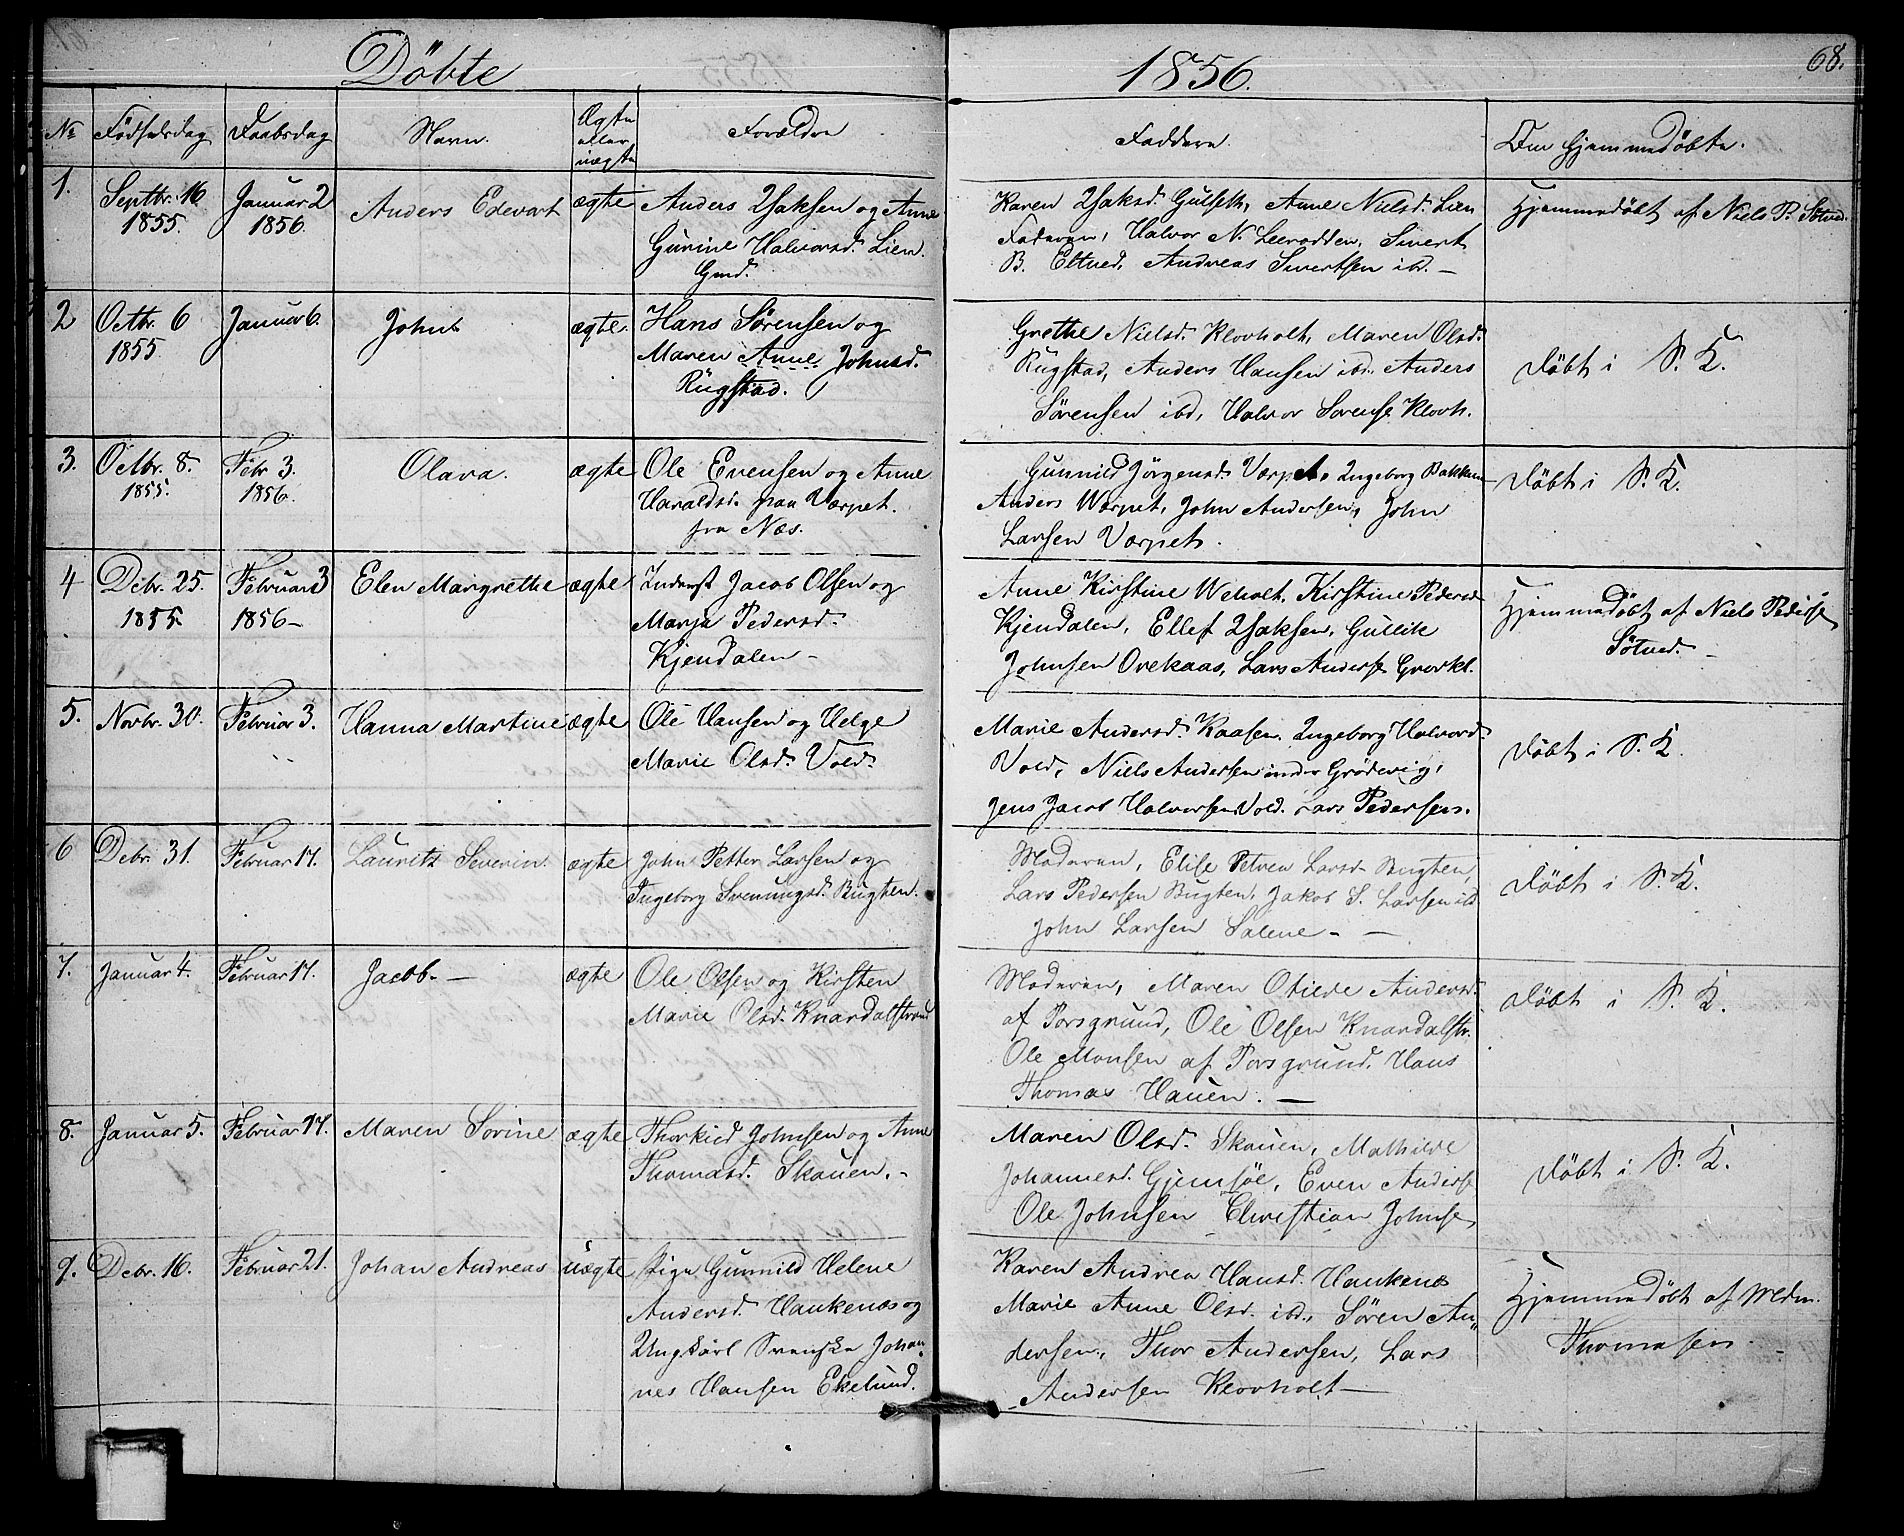 Döbte
1856.
68.
No Födselsdag Daabsdag Navn. Ægte eller uægte Forældre Faddere. Om hjemmedöbte.
1. Septbr. 16 1855. Januar 2 1856. Anders Edevart ægte
Anders Isaksen og Anne
Gurine Halvorsd. Lien.
Gmd.
Karen Isaksd. Gulseth, Anne Nielsd. Lien
Faderen, Halvor N. Leerodden, Sivert
B. Eltved, Andreas Sivertsen ibd. —
Hjemmedöbt af Niels P. Sötved.
2 Octbr. 6 1855 Januar 6. John ægte.
Hans Sörensen og
Maren Anne Johnsd.
Rugstad.
Grethe Nielsd. Klovholt, Maren Olsd.
Rugstad, Anders Hansen ibd. Anders
Sörensen ibd, Halvor Sorense Klovh.
Döbt i S. K.
3. Octbr. 8. 1855. Febr 3. 1856. Olava. ægte
Ole Evensen og Anne
Haraldsd. paa Værpet.
fra Næs.
Gunnild Jörgensd. Værpet, Ingeborg Bakken
Anders Wærpet, John Andersen, John
Larsen Værpet.
Döbt i S. K.
4 Debr. 25. 1855. Februar 3 1856 — Elen Margrethe ægte
Inderst Jacob Olsen og
Marja Pedersd.
Kjendalen —
Anne Kirstine Weholt, Kirstine Pedersd
Kjendalen, Ellef Isaksen, Gullik
Johnsen Ovekaas, Lars Anderse Gravkl.
Hjemmedöbt af Niels Pederse
Sötved. —
5. Novbr. 30. Februar 3. Hanna Martine ægte
Ole Hansen og Helge
Marie Olsd. Vold.
Marie Andersd. Kaasen. Ingeborg Halvord.
Vold, Niels Andersen under Grödevig,
Jens Jacob Halvorsen Vold. Lars Pedersen.
Döbt i S. K.
6 Debr. 31. Februar 17. Lauritz Severin. ægte
John Petter Larsen og
Ingeborg Svenungsd. Bugten.
Moderen, Elise Petrea Larsd. Bugten,
Lars Pedersen Bugten, Jakob S. Larsen ibd
John Larsen Salene — —
Döbt i S. K.
7. Januar 4. Februar 17. Jacob. — ægte
Ole Olsen og Kirsten
Marie Olsd. Knardalstrand
Moderen, Maren Otilde Andersd.
af Porsgrund, Ole Olsen Knardalstr.
Ole Monsen af Porsgrund. Hans
Thomas Hauen. —
Döbt i S. K.
8. Januar 5. Februar 17. Maren Sorine ægte
Thorkild Johnsen og Anne
Thomasd. Skauen. —
Maren Olsd. Skauen, Mathilde
Johannesd. Gjemsöe, Even Anderse
Ole Johnsen Christian Johnse
Döbt i S. K.
9. Debr. 16. Februar 21. Johan Andreas uægte
Pige Gunnild Helene
Andersd. Haukenæs og
Ungkarl Svenske Johan
nes Hansen Ekelund.
Karen Andrea Hansd. Haukenæs
Marie Anne Olsd. ibd., Sören An
dersen, Thor Andersen, Lars
Andersen Klovholt —
Hjemmedöbt af Mdm.
Thomasen.